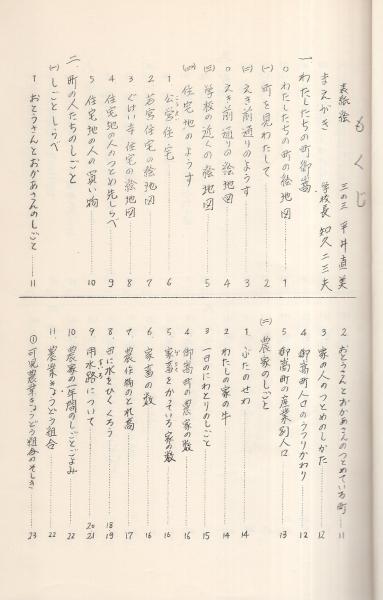 もくじ
表紙絵 三の三 平井直美
まえがき 学校長 知久二三夫
一、わたしたちの町御嵩
○ わたしたちの町の絵地図 1
(一) 町を見わたして 2
(二) えき前通りのようす 3
○ えき前通りの絵地図 4
(三) 学校の近くの絵地図 5
(四) 住宅地のようす
1 公営住宅 6
2 若宮住宅の絵地図 7
3 ぐけい寺住宅の絵地図 8
4 住宅地の人のつとめ先しらべ 9
5 住宅地の人の買い物 10
二、町の人たちのしごと
(一) しごとしらべ
1 おとうさんとおかあさんのしごと 11
2 おとうさんとおかあさんのつとめている町 11
3 家の人のつとめのしかた 12
4 御嵩町人口のうつりかわり 12
5 御嵩町の産業別人口 13
(二) 農家のしごと
1. ぶたのせわ 14
2 わたしの家の牛 14
3 一日のにわとりのしごと 15
4 御嵩町の農家の数 16
5 家畜をかている家の数 16
6 家畜の数 16
7 農作物のとれ高 17
8 田に水をひくくろう 18 19
9 用水路について 20 21
10 農家の一年間のしごとごよみ 22
11 農業きょうどう組合 22
① 可児農業きょうどう組合のそしき 23